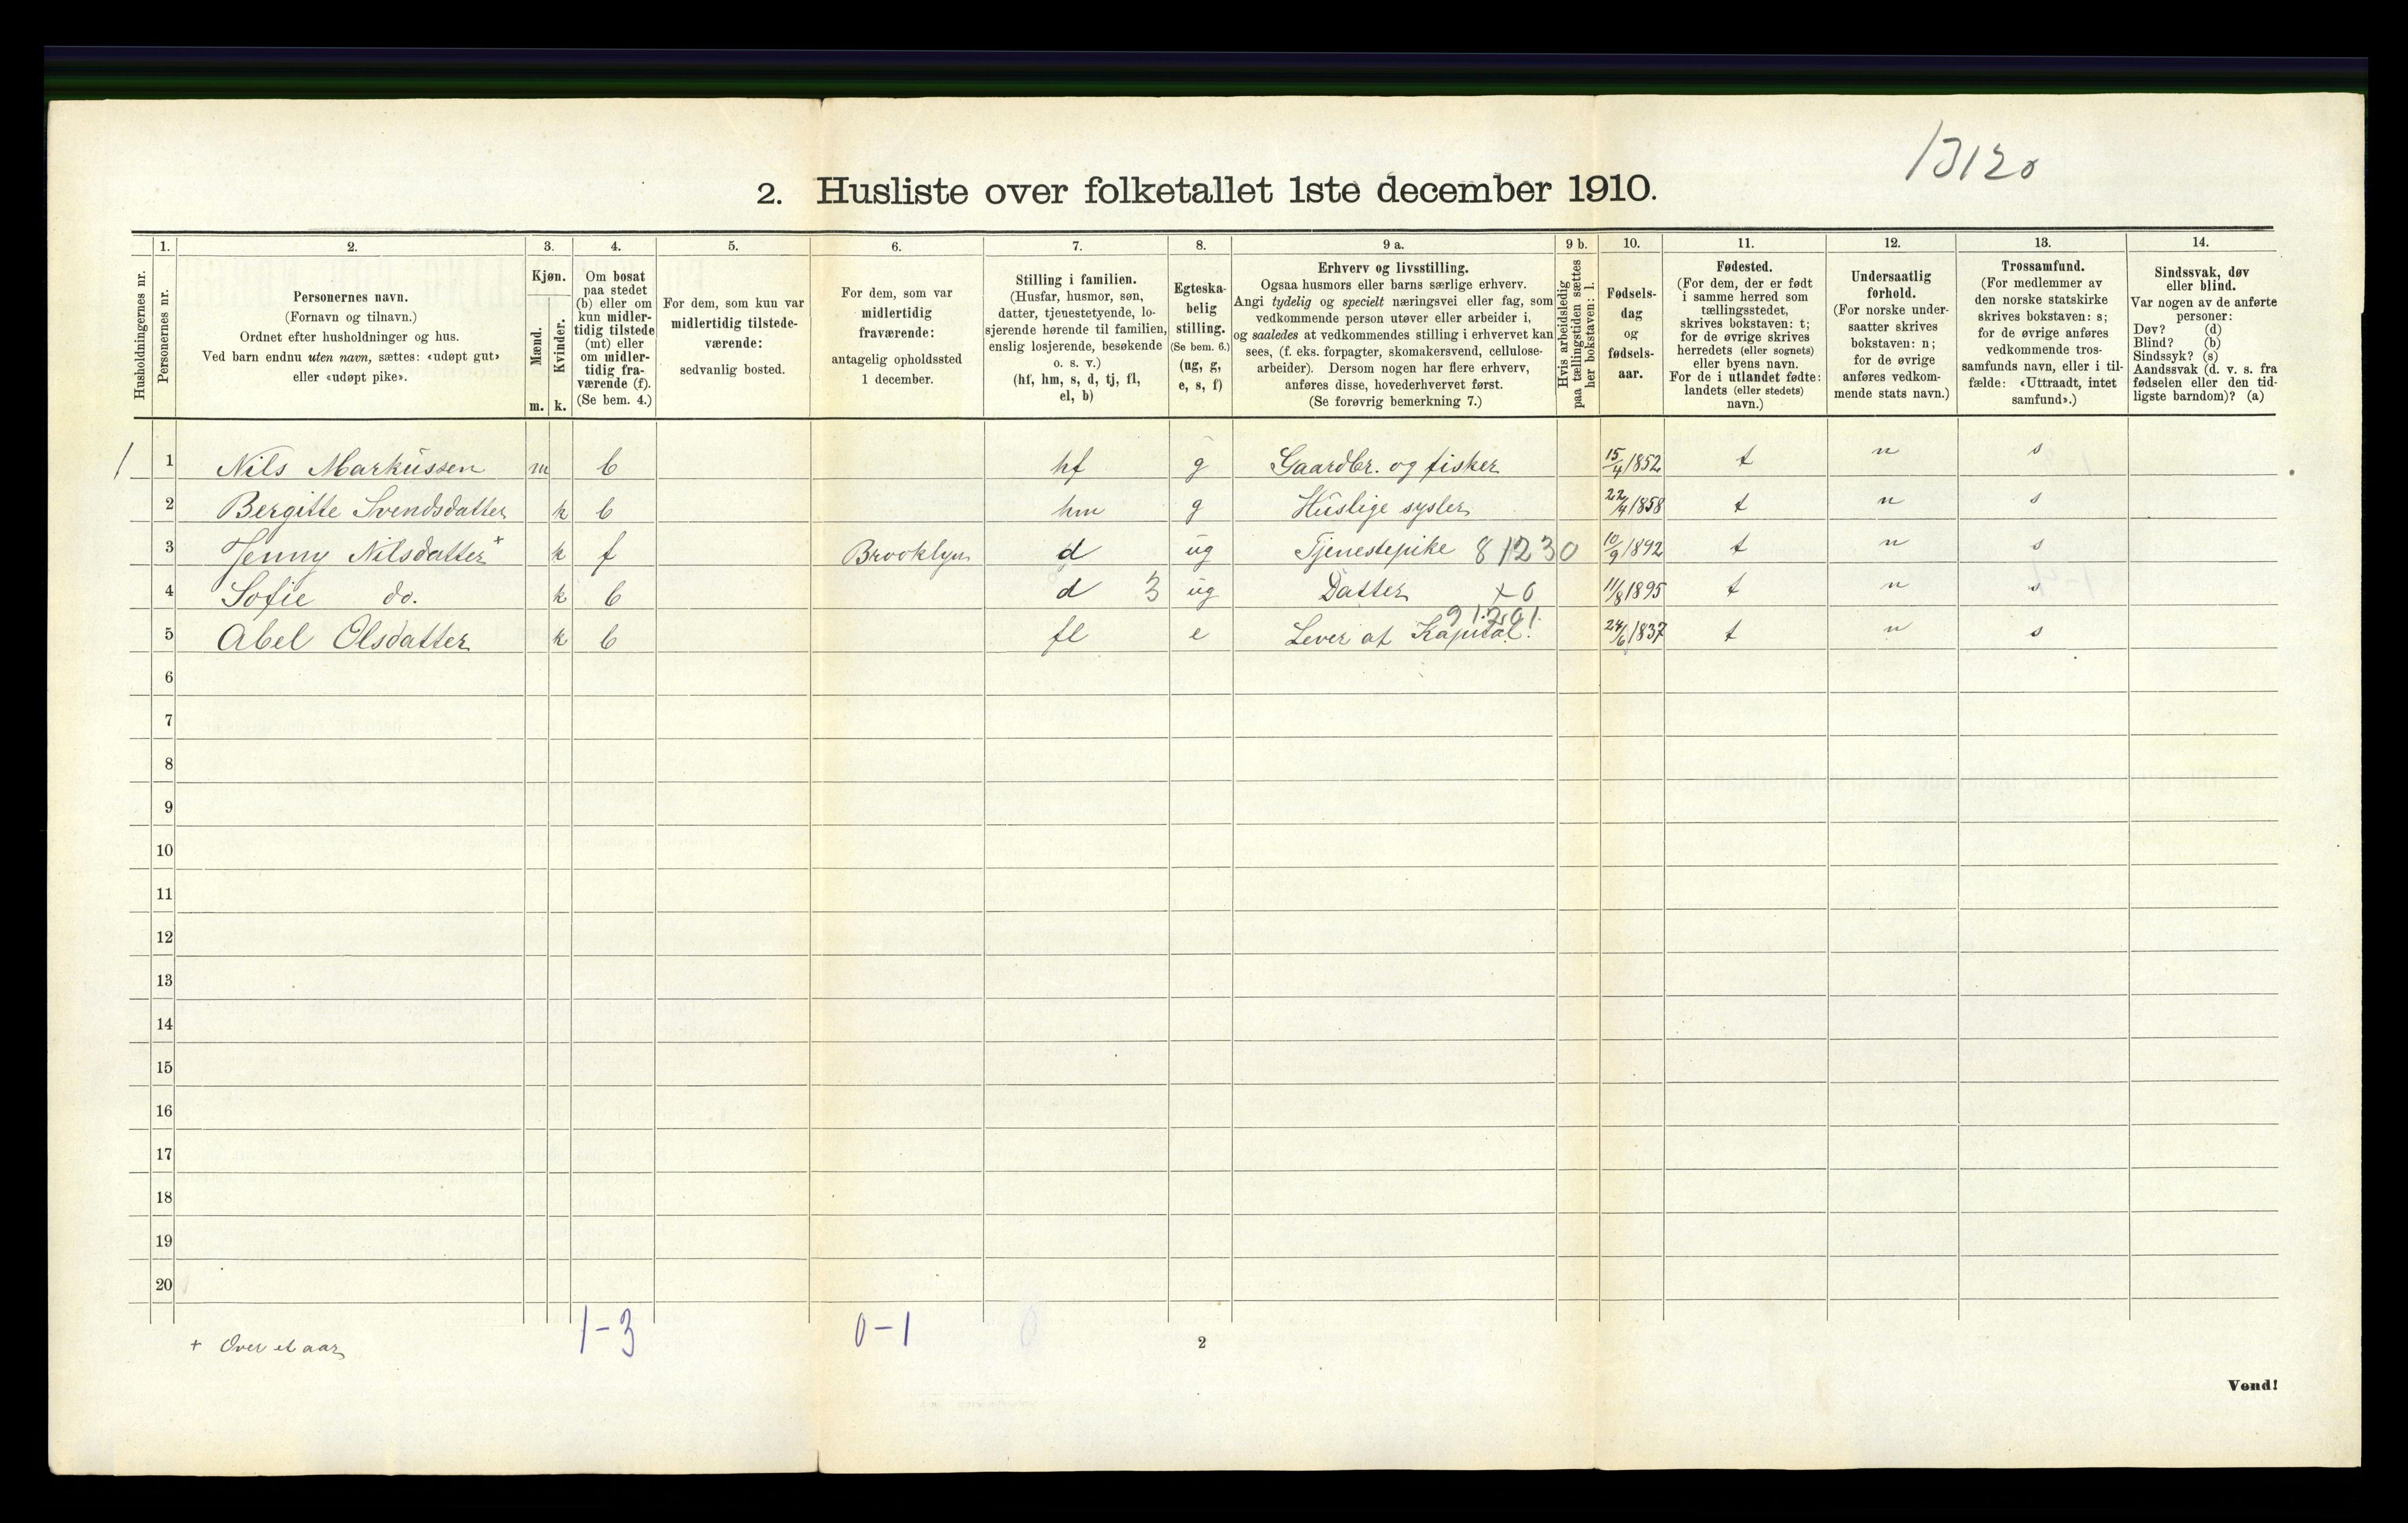 13120
2. Husliste over folketallet 1ste december 1910.
Husholdningernes nr.
1.
Personernes nr.
2.
Personernes navn.
(Fornavn og tilnavn.)
Ordnet efter husholdninger og hus.
Ved barn endnu uten navn, sættes: «udøpt gut»
eller «udøpt pike».
3.
Kjøn.
Mænd.
Kvinder.
m. k.
4.
Om bosat
paa stedet
(b) eller om
kun midler-
tidig tilstede
(mt) eller
om midler-
tidig fra-
værende (f).
(Se bem. 4.)
5.
For dem, som kun var
midlertidig tilstede-
værende:
sedvanlig bosted.
6.
For dem, som var
midlertidig
fraværende:
antagelig opholdssted
1 december.
7.
Stilling i familien.
(Husfar, husmor, søn,
datter, tjenestetyende, lo-
sjerende hørende til familien,
enslig losjerende, besøkende
o. s. v.)
(hf, hm, s, d, tj, fl,
el, b)
8.
Egteska-
belig
stilling.
(Se bem. 6.)
(ug, g,
e, s, f)
9 a.
Erhverv og livsstilling.
Ogsaa husmors eller barns særlige erhverv.
Angi tydelig og specielt næringsvei eller fag, som
vedkommende person utøver eller arbeider i,
og saaledes at vedkommendes stilling i erhvervet kan
sees, (f. eks. forpagter, skomakersvend, cellulose-
arbeider). Dersom nogen har flere erhverv,
anføres disse, hovederhvervet først.
(Se forøvrig bemerkning 7.)
9 b.
Hvis arbeidsledig
paa tællingstiden sættes
her bokstaven: l.
10.
Fødsels-
dag
og
fødsels-
aar.
11.
Fødested.
(For dem, der er født
i samme herred som
tællingsstedet,
skrives bokstaven: t;
for de øvrige skrives
herredets (eller sognets)
eller byens navn.
For de i utlandet fødte:
landets (eller stedets)
navn.)
12.
Undersaatlig
forhold.
(For norske under-
saatter skrives
bokstaven: n;
for de øvrige
anføres vedkom-
mende stats navn.)
13.
Trossamfund.
(For medlemmer av
den norske statskirke
skrives bokstaven: s;
for de øvrige anføres
vedkommende tros-
samfunds navn, eller i til-
fælde: «Uttraadt, intet
samfund».)
14.
Sindssvak, døv
eller blind.
Var nogen av de anførte
personer:
Døv? (d)
Blind? (b)
Sindssyk? (s)
Aandssvak (d. v. s. fra
fødselen eller den tid-
ligste barndom)? (a)
1 1 Nils Markussen m b hf g Gaardbr. og fisker 15/4 1852 t n s
2 Bergitte Svendsdatter k b hm g Huslige sysler 22/4 1858 t n s
3 Jenny Nilsdatter* k f Brooklyn d ug Tjenestepike 81230 10/9 1892 t n s
4 Sofie do. k b d 3 ug Datter +0 11/8 1895 t n s
91201
5 Abel Olsdatter k b fl e Lever af Kapital. 24/6 1837 t n s
6
7
8
9
10
11
12
13
14
15
16
17
18
19
20
1-3 0-1 0
+ Over et aar
2
Vend!